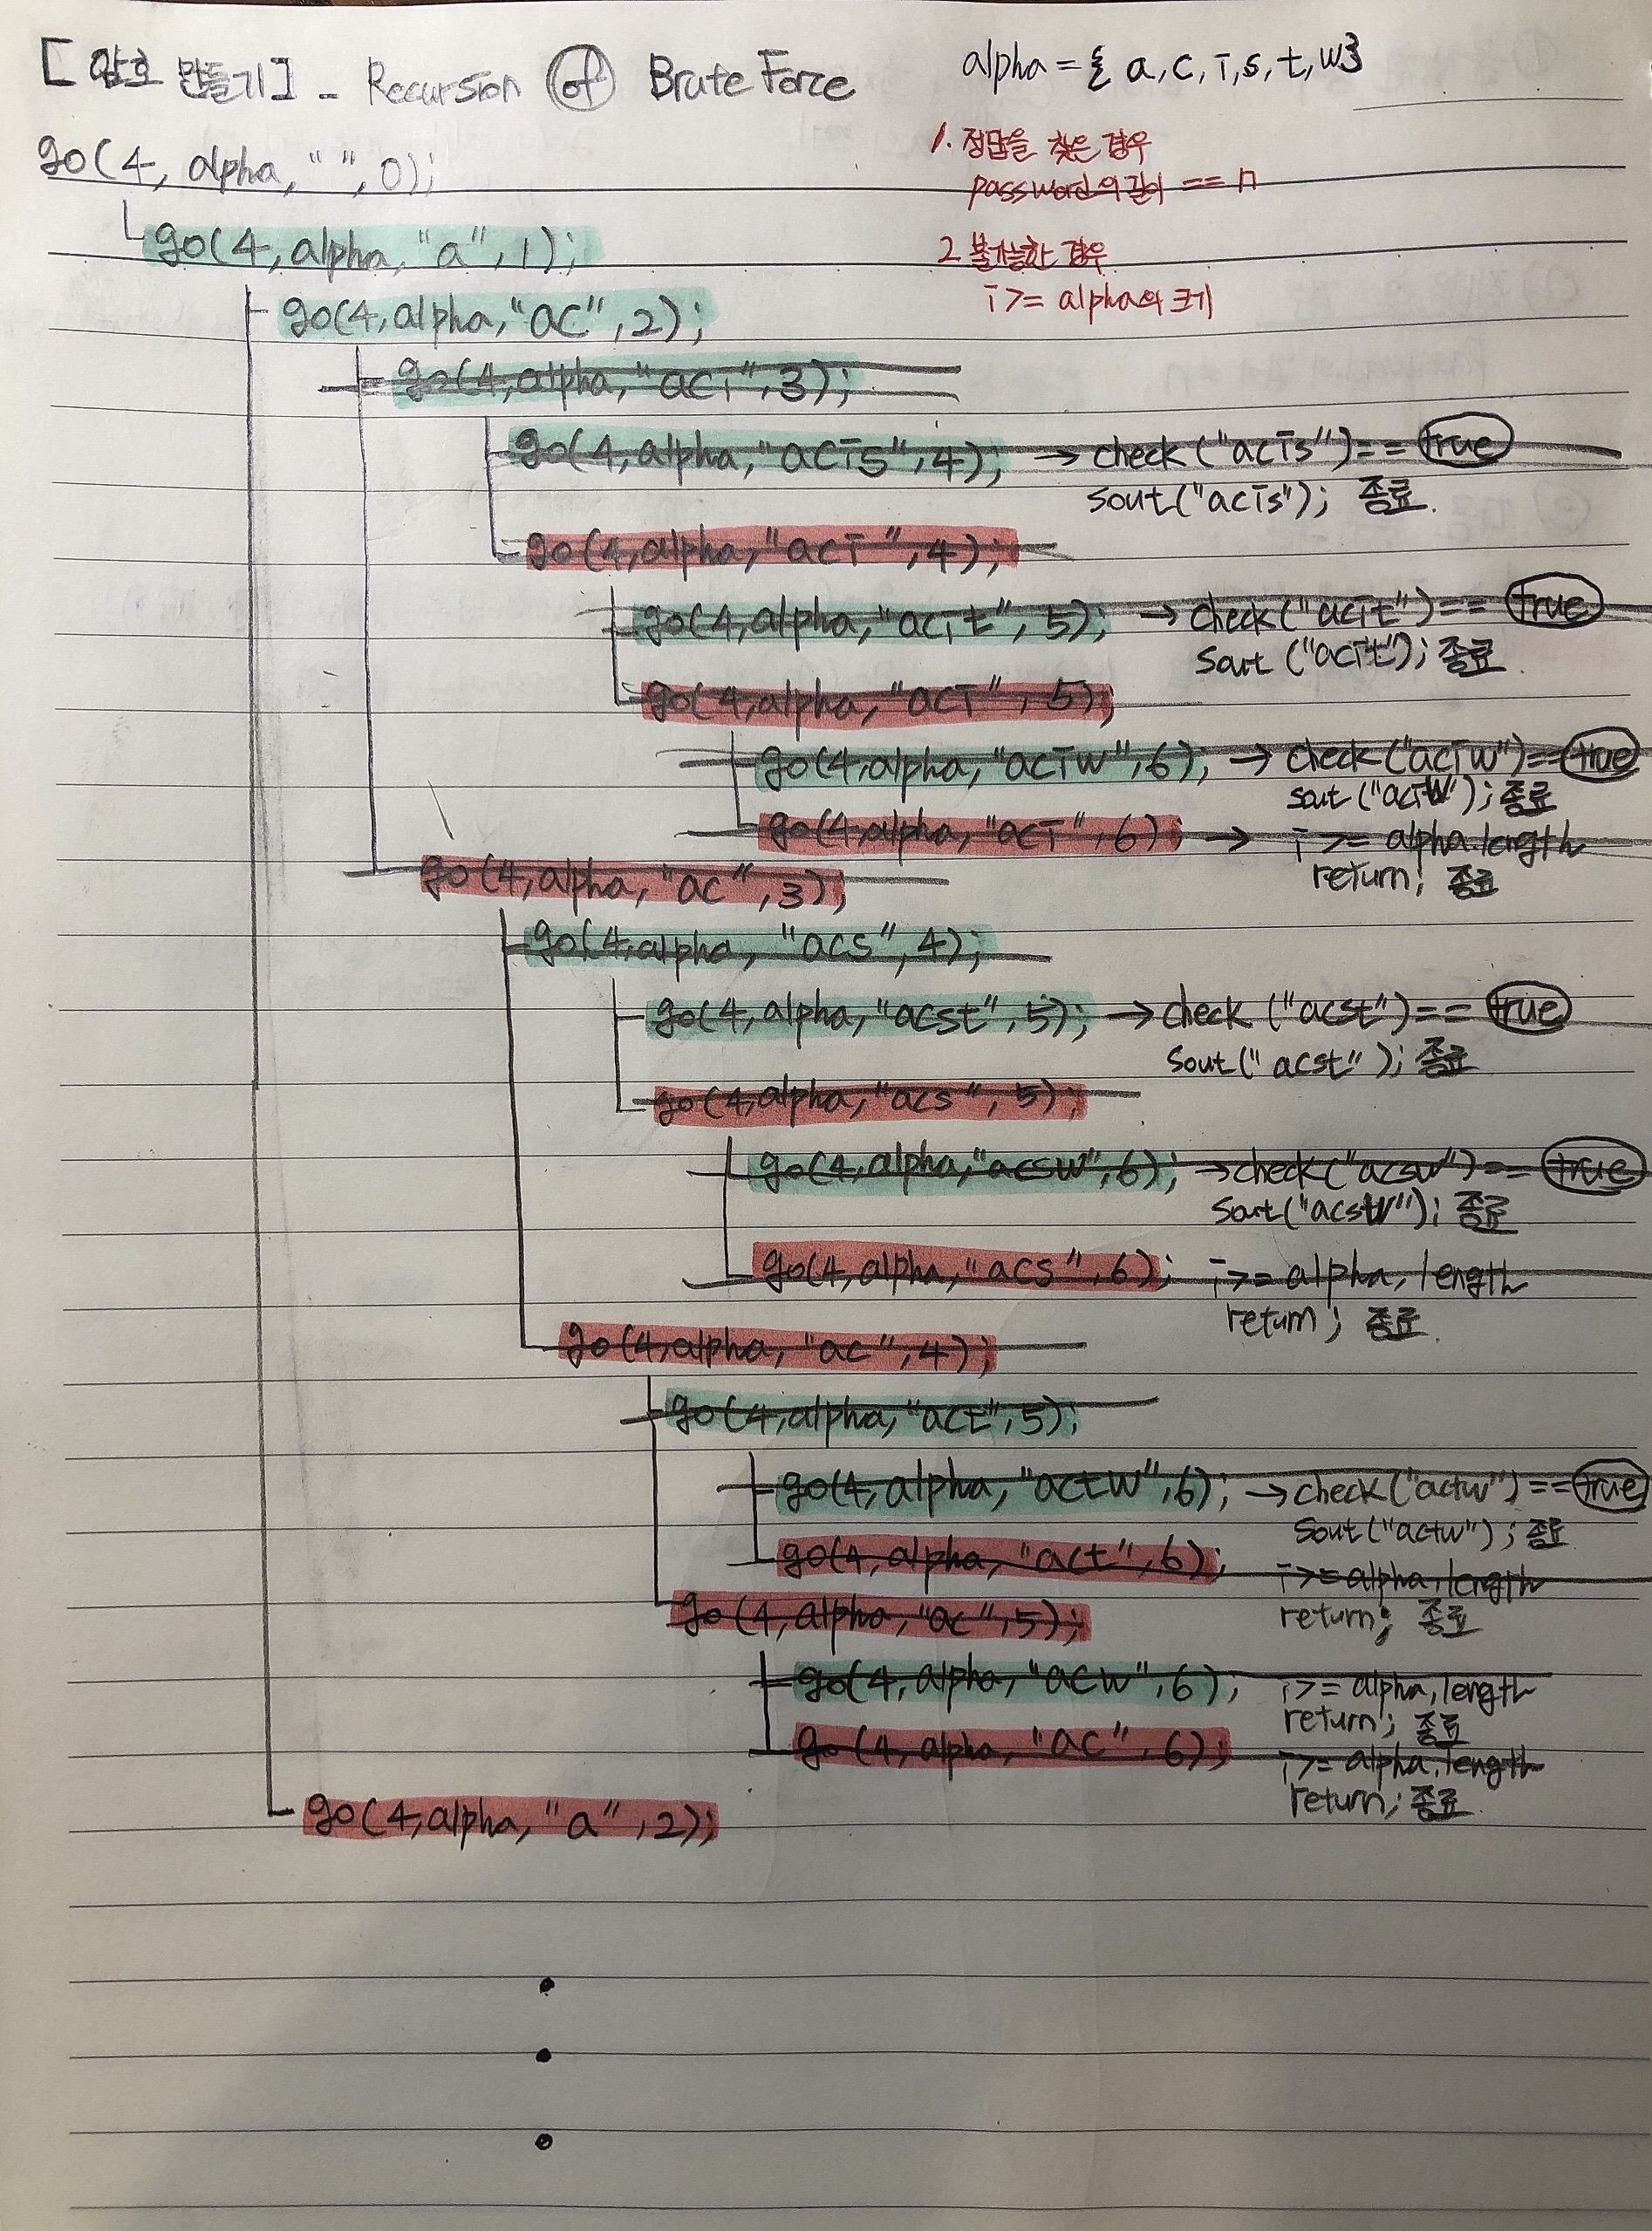 [암호 만들기] - Recursion of Brute Force
alpha = { a, c, i, s, t, w }
go(4, alpha, " ", 0);
1. 정답을 찾은 경우
password의 길이 == n
go(4, alpha, "a", 1);
2 불가능한 경우
i >= alpha의 크기
go(4, alpha, "ac", 2);
go(4, alpha, "aci", 3);
go(4, alpha, "acis", 4); → check ("acis") == true
sout("acis"); 종료.
go(4, alpha, "aci ", 4);
go(4, alpha, "acit", 5); → check("acit") == true
sout ("acit"); 종료
go(4, alpha, "aci", 5);
go(4, alpha, "aciw", 6); → check("aciw") == true
sout("aciw"); 종료
go(4, alpha, "aci", 6) → i >= alpha.length
return; 종료
go(4, alpha, "ac", 3);
go(4, alpha, "acs", 4);
go(4, alpha, "acst", 5); → check ("acst") == true
sout("acst"); 종료
go(4, alpha, "acs", 5);
go(4, alpha, "acsw", 6); → check("acsw") == true
sout("acstw"); 종료
go(4, alpha, "acs", 6); i >= alpha.length
return; 종료.
go(4, alpha, "ac", 4);
go(4, alpha, "act", 5);
go(4, alpha, "actw", 6); → check("actw") == true
sout("actw"); 종료
go(4, alpha, "act", 6); i >= alpha.length
return; 종료
go(4, alpha, "ac", 5);
go(4, alpha, "acw", 6); i >= alpha.length
return; 종료
go(4, alpha, "ac", 6); i >= alpha.length
return; 종료.
go(4, alpha, "a", 2);